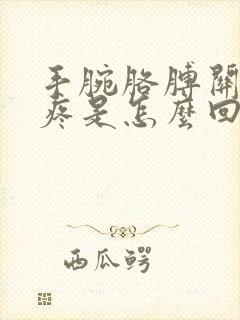 手腕胳膊關
疼是怎麼回
西瓜鳄